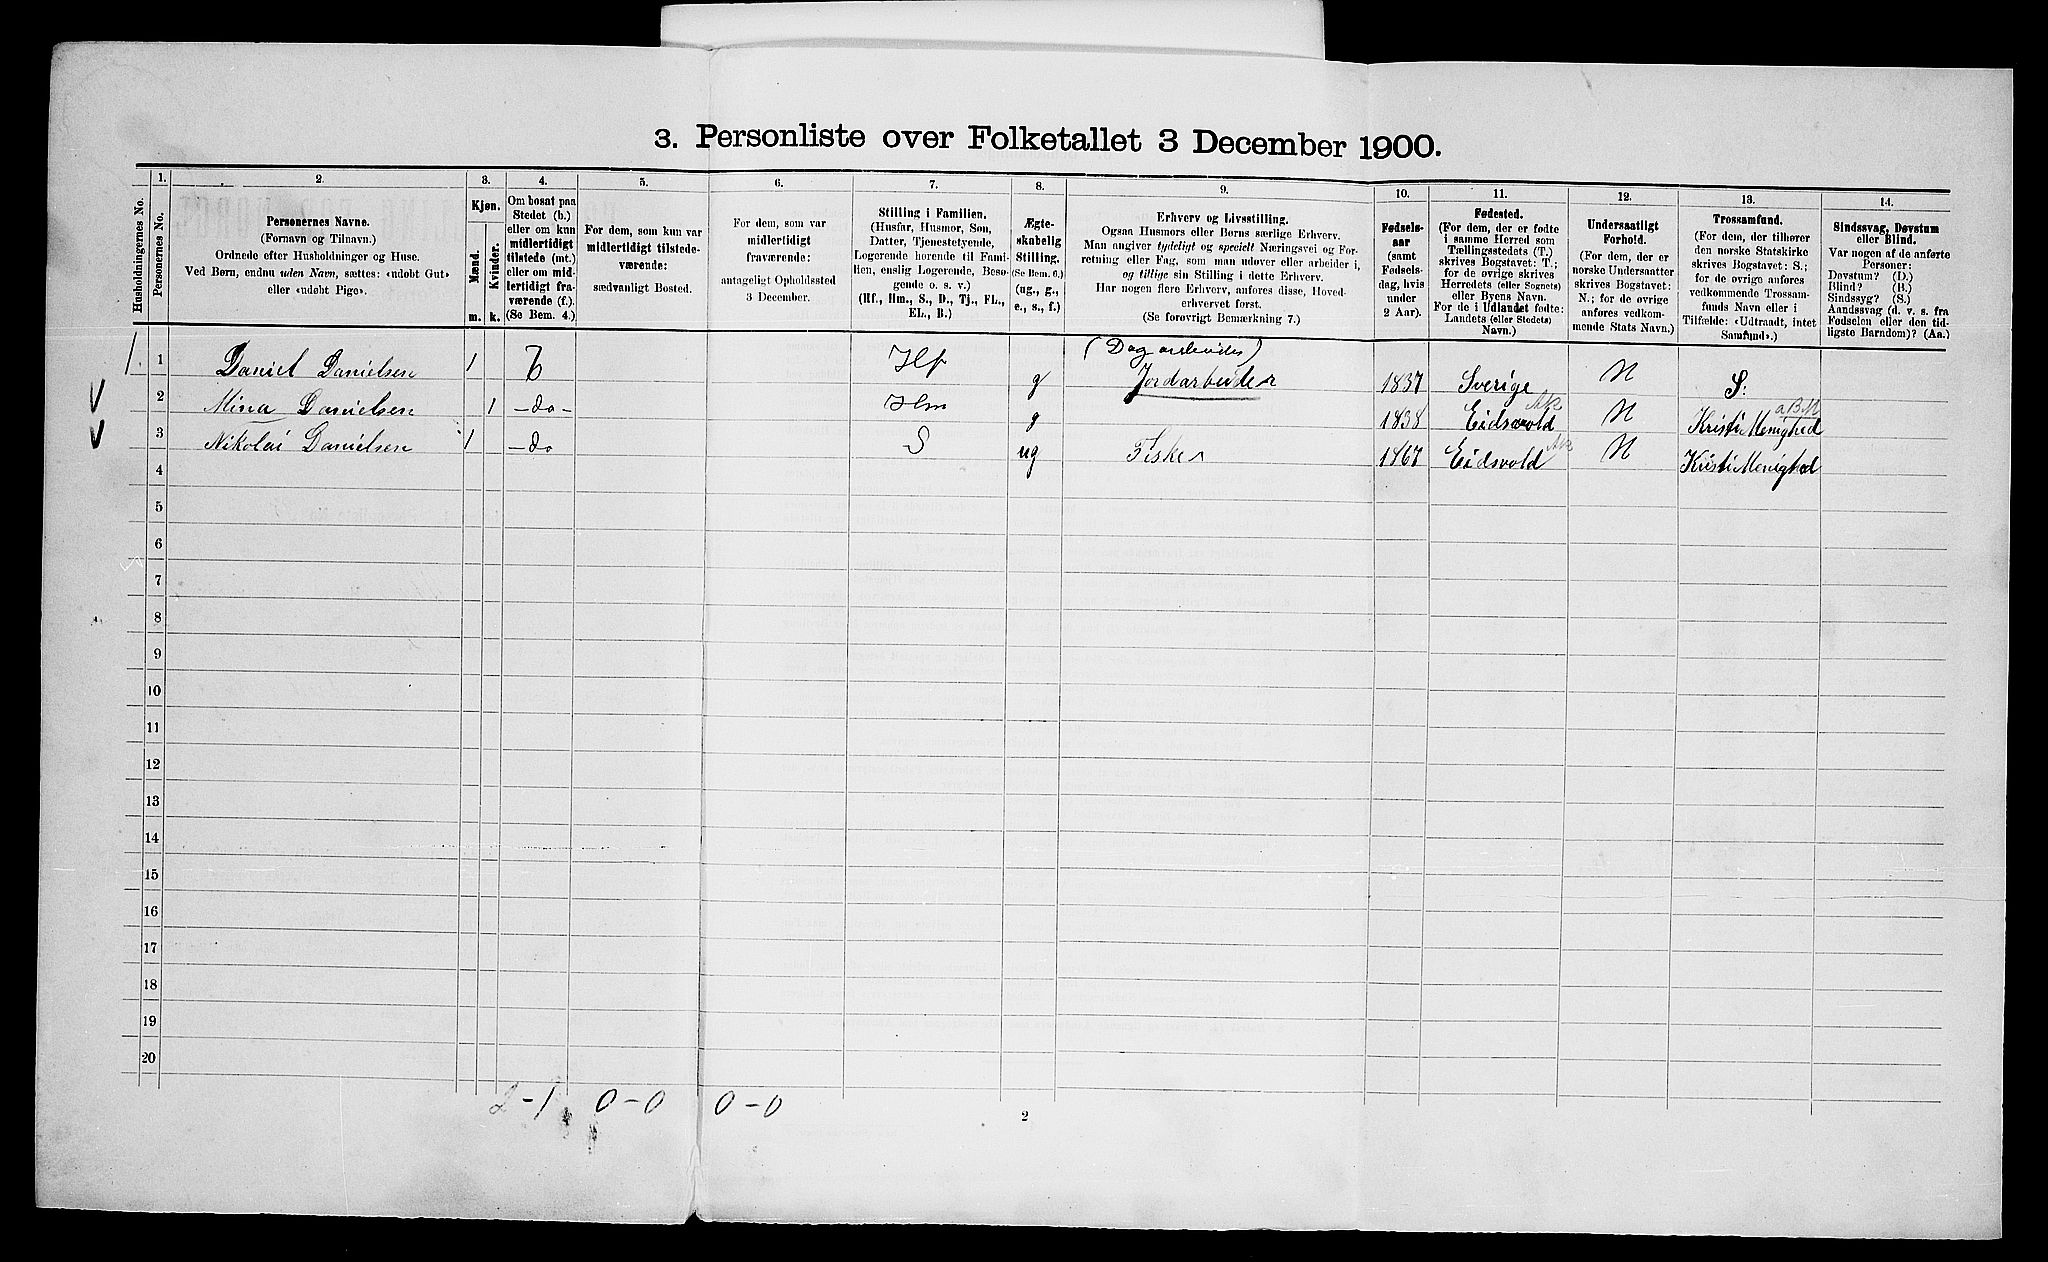 3. Personliste over Folketallet 3 December 1900.
Husholdningernes No.
1.
Personernes No.
2.
Personernes Navne.
(Fornavn og Tilnavn.)
Ordnede efter Husholdninger og Huse.
Ved Børn, endnu uden Navn, sættes: «udøbt Gut»
eller «udøbt Pige».
3.
Kjøn.
Mænd.
Kvinder.
m.
k.
4.
Om bosat paa
Stedet (b.)
eller om kun
midlertidigt
tilstede (mt.)
eller om mid-
lertidigt fra-
værende (f.).
(Se Bem. 4.)
5.
For dem, som kun var
midlertidigt tilstede-
værende:
sædvanligt Bosted.
6.
For dem, som var
midlertidigt
fraværende:
antageligt Opholdssted
3 December.
7.
Stilling i Familien.
(Husfar, Husmor, Søn,
Datter, Tjenestetyende,
Logerende hørende til Fami-
lien, enslig Logerende, Besø-
gende o. s. v.)
(Hf., Hm., S., D., Tj., FL.,
EL., B.)
8.
Ægte-
skabelig
Stilling.
(Se Bem. 6.)
(ug., g.,
e., s., f.)
9.
Erhverv og Livsstilling.
Ogsaa Husmors eller Børns særlige Erhverv.
Man angiver tydeligt og specielt Næringsvei og For-
retning eller Fag, som man udøver eller arbeider i,
og tillige sin Stilling i dette Erhverv.
Har nogen flere Erhverv, anføres disse, Hoved-
erhvervet først.
(Se forøvrigt Bemærkning 7.)
10.
Fødsels-
aar
(samt
Fødsels-
dag, hvis
under
2 Aar).
11.
Fødested.
(For dem, der er fødte
i samme Herred som
Tællingsstedets (T.)
skrives Bogstavet: T.;
for de øvrige skrives
Herredets (eller Sognets)
eller Byens Navn.
For de i Udlandet fødte:
Landets (eller Stedets)
Navn.)
12.
Undersaatligt
Forhold.
(For dem, der er
norske Undersaatter
skrives Bogstavet:
N.; for de øvrige
anføres vedkom-
mende Stats Navn.)
13.
Trossamfund.
(For dem, der tilhører
den norske Statskirke
skrives Bogstavet: S.;
for de øvrige anføres
vedkommende Trossam-
funds Navn eller i
Tilfælde: «Udtraadt, intet
Samfund».)
14.
Sindssvag, Døvstum
eller Blind.
Var nogen af de anførte
Personer:
Døvstum? (D.)
Blind? (B.)
Sindssyg? (S.)
Aandssvag (d. v. s. fra
Fødselen eller den tid-
ligste Barndom)? (Aa.)
(Dagarbeider)
1. 1 Daniel Danielsen 1 b Hf g Jordarbeider 1837 Sverige N S.
2 Mina Danielsen 1 -do- Hm g 1838 Eidsvold Ak N Kristi Menighed
3 Nikolai Danielsen 1 -do S ug Fisker 1867 Eidsvold Ak N Kristi Menighed
4
5
6
7
8
9
10
11
12
13
14
15
16
17
18
19
20
2-1 0-0 0-0
2